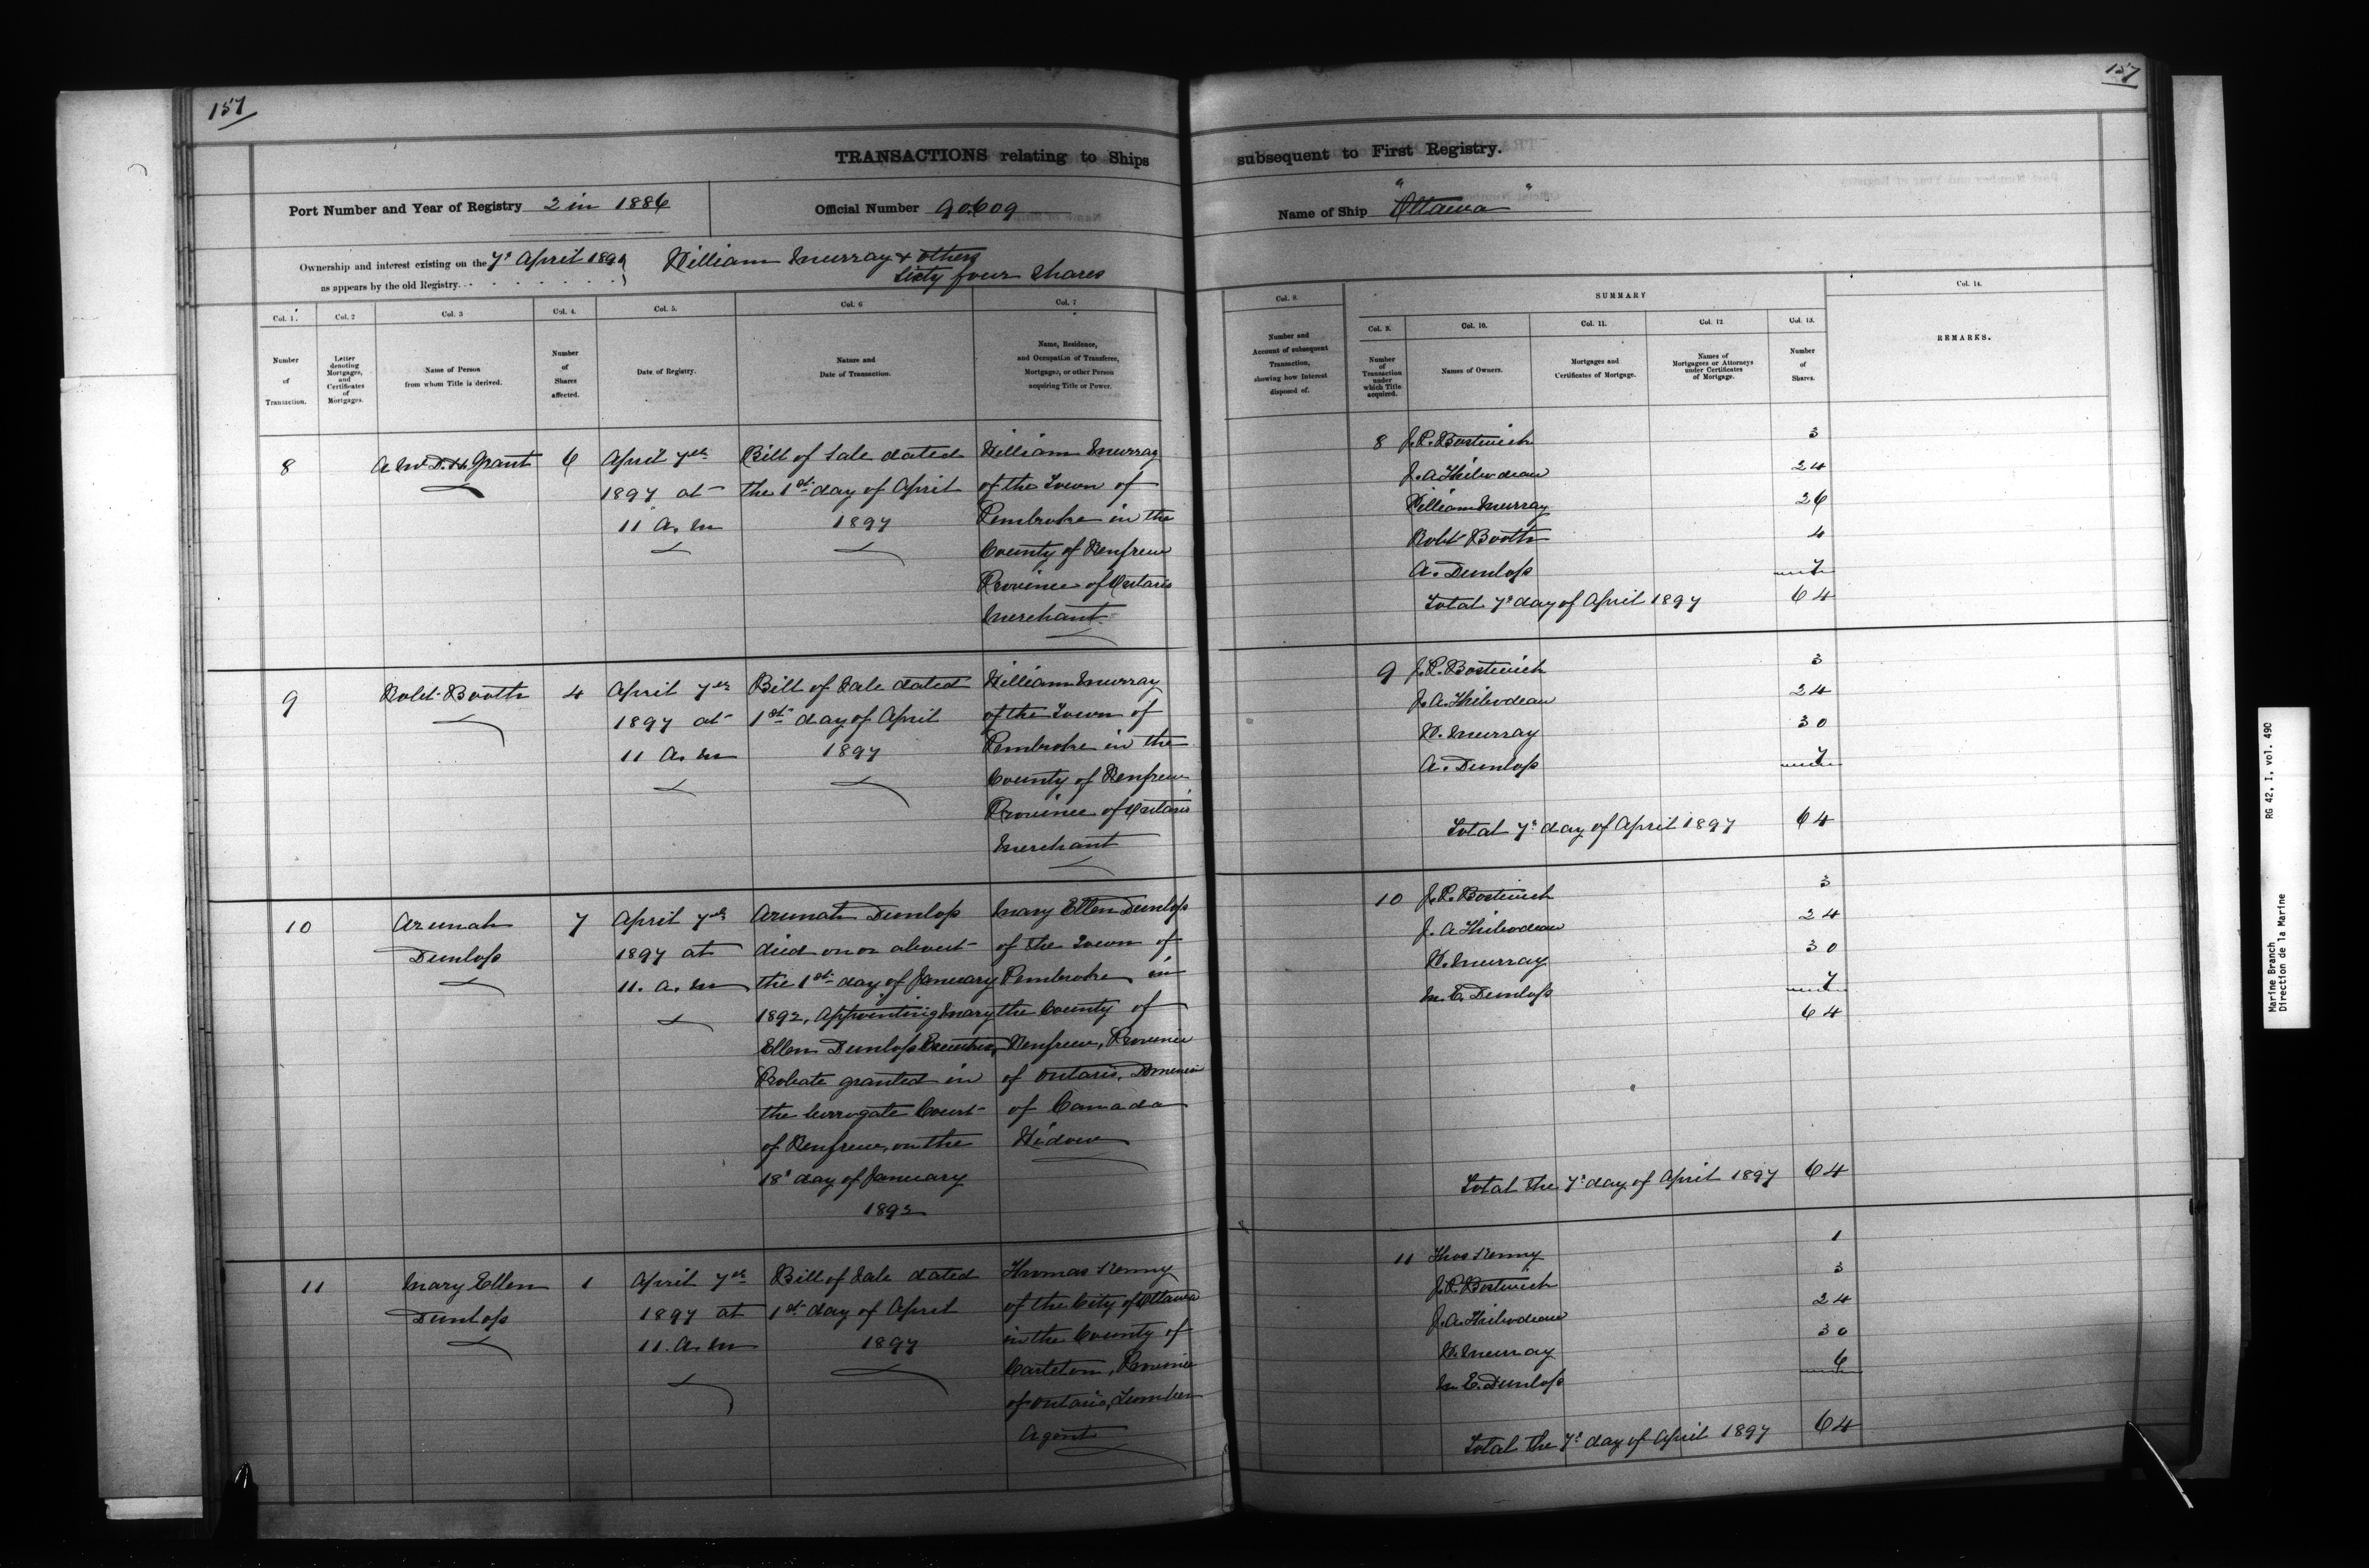 157
157
TRANSACTIONS relating to Ships
subsequent to First Registry.
Port Number and Year of Registry 2 in 1886
Official Number 90.609
Name of Ship "Ottawa"
Ownership and interest existing on the 7th April 1897
as appears by the old Registry.
William Murray & others
Sixty four shares
Col. 1.
Number
of
Transaction.
Col. 2
Letter
denoting
Mortgages,
and
Certificates
of
Mortgages.
Col. 3
Name of Person
from whom Title is derived.
Col. 4.
Number
of
Shares
affected.
Col. 5.
Date of Registry.
Col. 6
Nature and
Date of Transaction.
Col. 7
Name, Residence,
and Occupation of Transferee,
Mortgagee, or other Person
acquiring Title or Power.
Col. 8.
Number and
Account of subsequent
Transaction,
showing how Interest
disposed of.
SUMMARY
Col. 9.
Number
of
Transaction
under
which Title
acquired.
Col. 10.
Names of Owners.
Col. 11.
Mortgages and
Certificates of Mortgage.
Col. 12
Names of
Mortgagees or Attorneys
under Certificates
of Mortgage.
Col. 13.
Number
of
Shares.
Col. 14.
REMARKS.
8
A McD. H. Grant
6
April 7th
1897 at
11 A.M
Bill of Sale dated
the 1st day of April
1897
William Murray
of the Town of
Pembroke in the
County of Renfrew
Province of Ontario
Merchant
8 J. P. Bostwick 3
J. A Thibodeau 24
William Murray 26
Robt Booth 4
A. Dunlop 7
Total 7th day of April 1897 64
9
Robt Booth
4
April 7th
1897 at
11 A.M
Bill of Sale dated
1st day of April
1897
William Murray
of the Town of
Pembroke in the
County of Renfrew
Province of Ontario
Merchant
9 J. P. Bostwick 3
J. A. Thibodeau 24
W. Murray 30
A. Dunlop 7
Total 7th day of April 1897 64
10
Arunah
Dunlop
7
April 7th
1897 at
11. A.M
Arunah Dunlop
died on or about
the 1st day of January
1892, Appointing Mary
Ellen Dunlop Executrix,
Probate granted in
the Surrogate Court
of Renfrew, on the
18th day of January
1892
Mary Ellen Dunlop
of the Town of
Pembroke in
the County of
Renfrew, Province
of Ontario, Dominion
of Canada
Widow
10 J. P. Bostwick 3
J. A Thibodeau 24
W. Murray 30
M. E. Dunlop 7
64
Total the 7th day of April 1897 64
11
Mary Ellen
Dunlop
1
April 7th
1897 at
11. A.M
Bill of Sale dated
1st day of April
1897
Thomas Kenny
of the City of Ottawa
in the County of
Carleton, Province
of Ontario, Lumber
Agent
11 Thos Kenny 1
J. P. Bostwick 3
J. A. Thibodeau 24
W. Murray 30
M E. Dunlop 6
Total the 7th day of April 1897 64
Marine Branch RG 42, I, vol. 490
Direction de la Marine